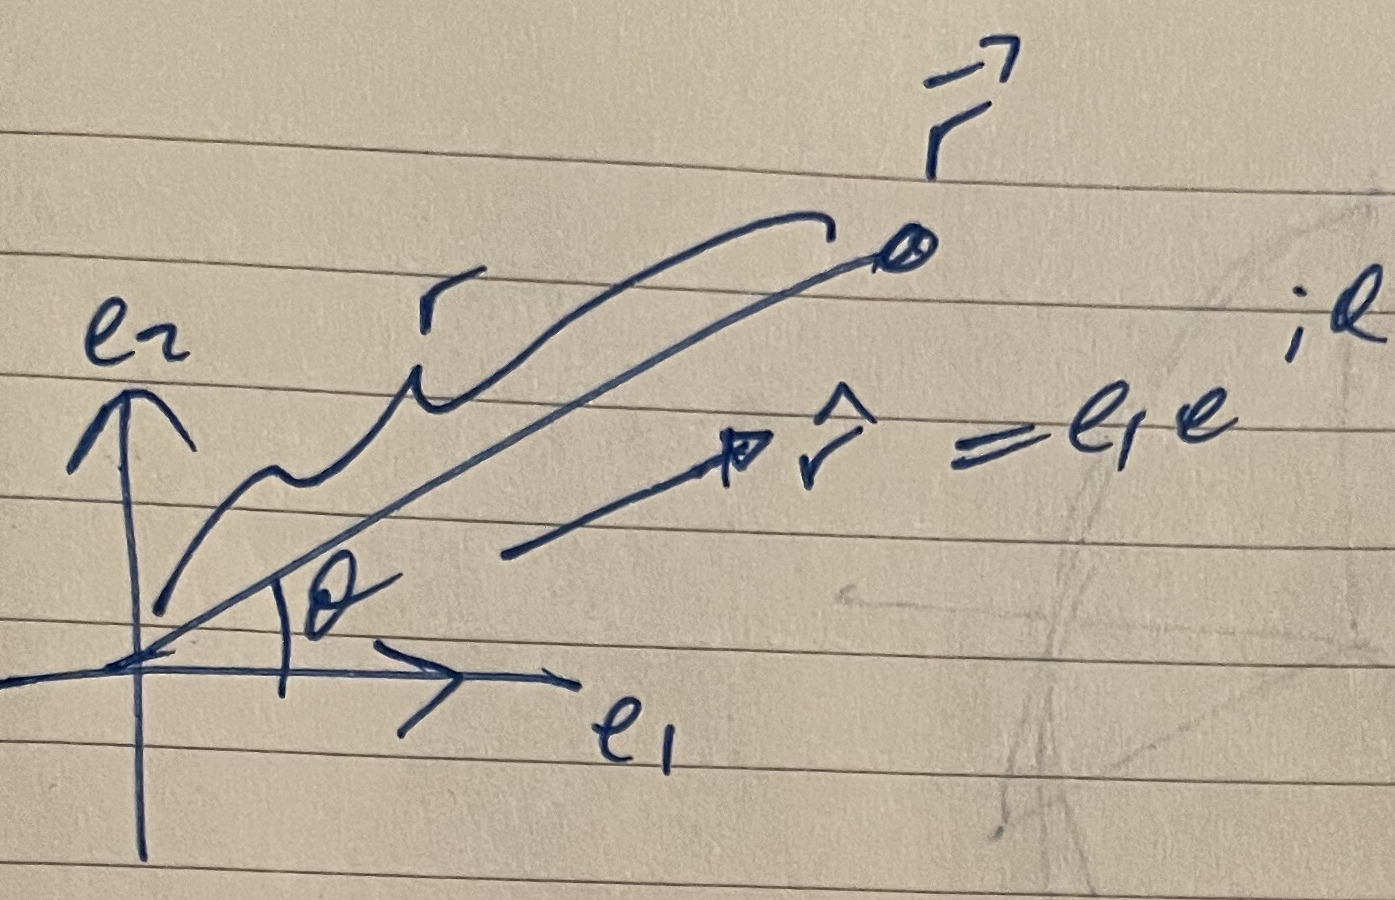 r⃗
r
e₂
r̂ = e₁ e^{iθ}
θ
e₁